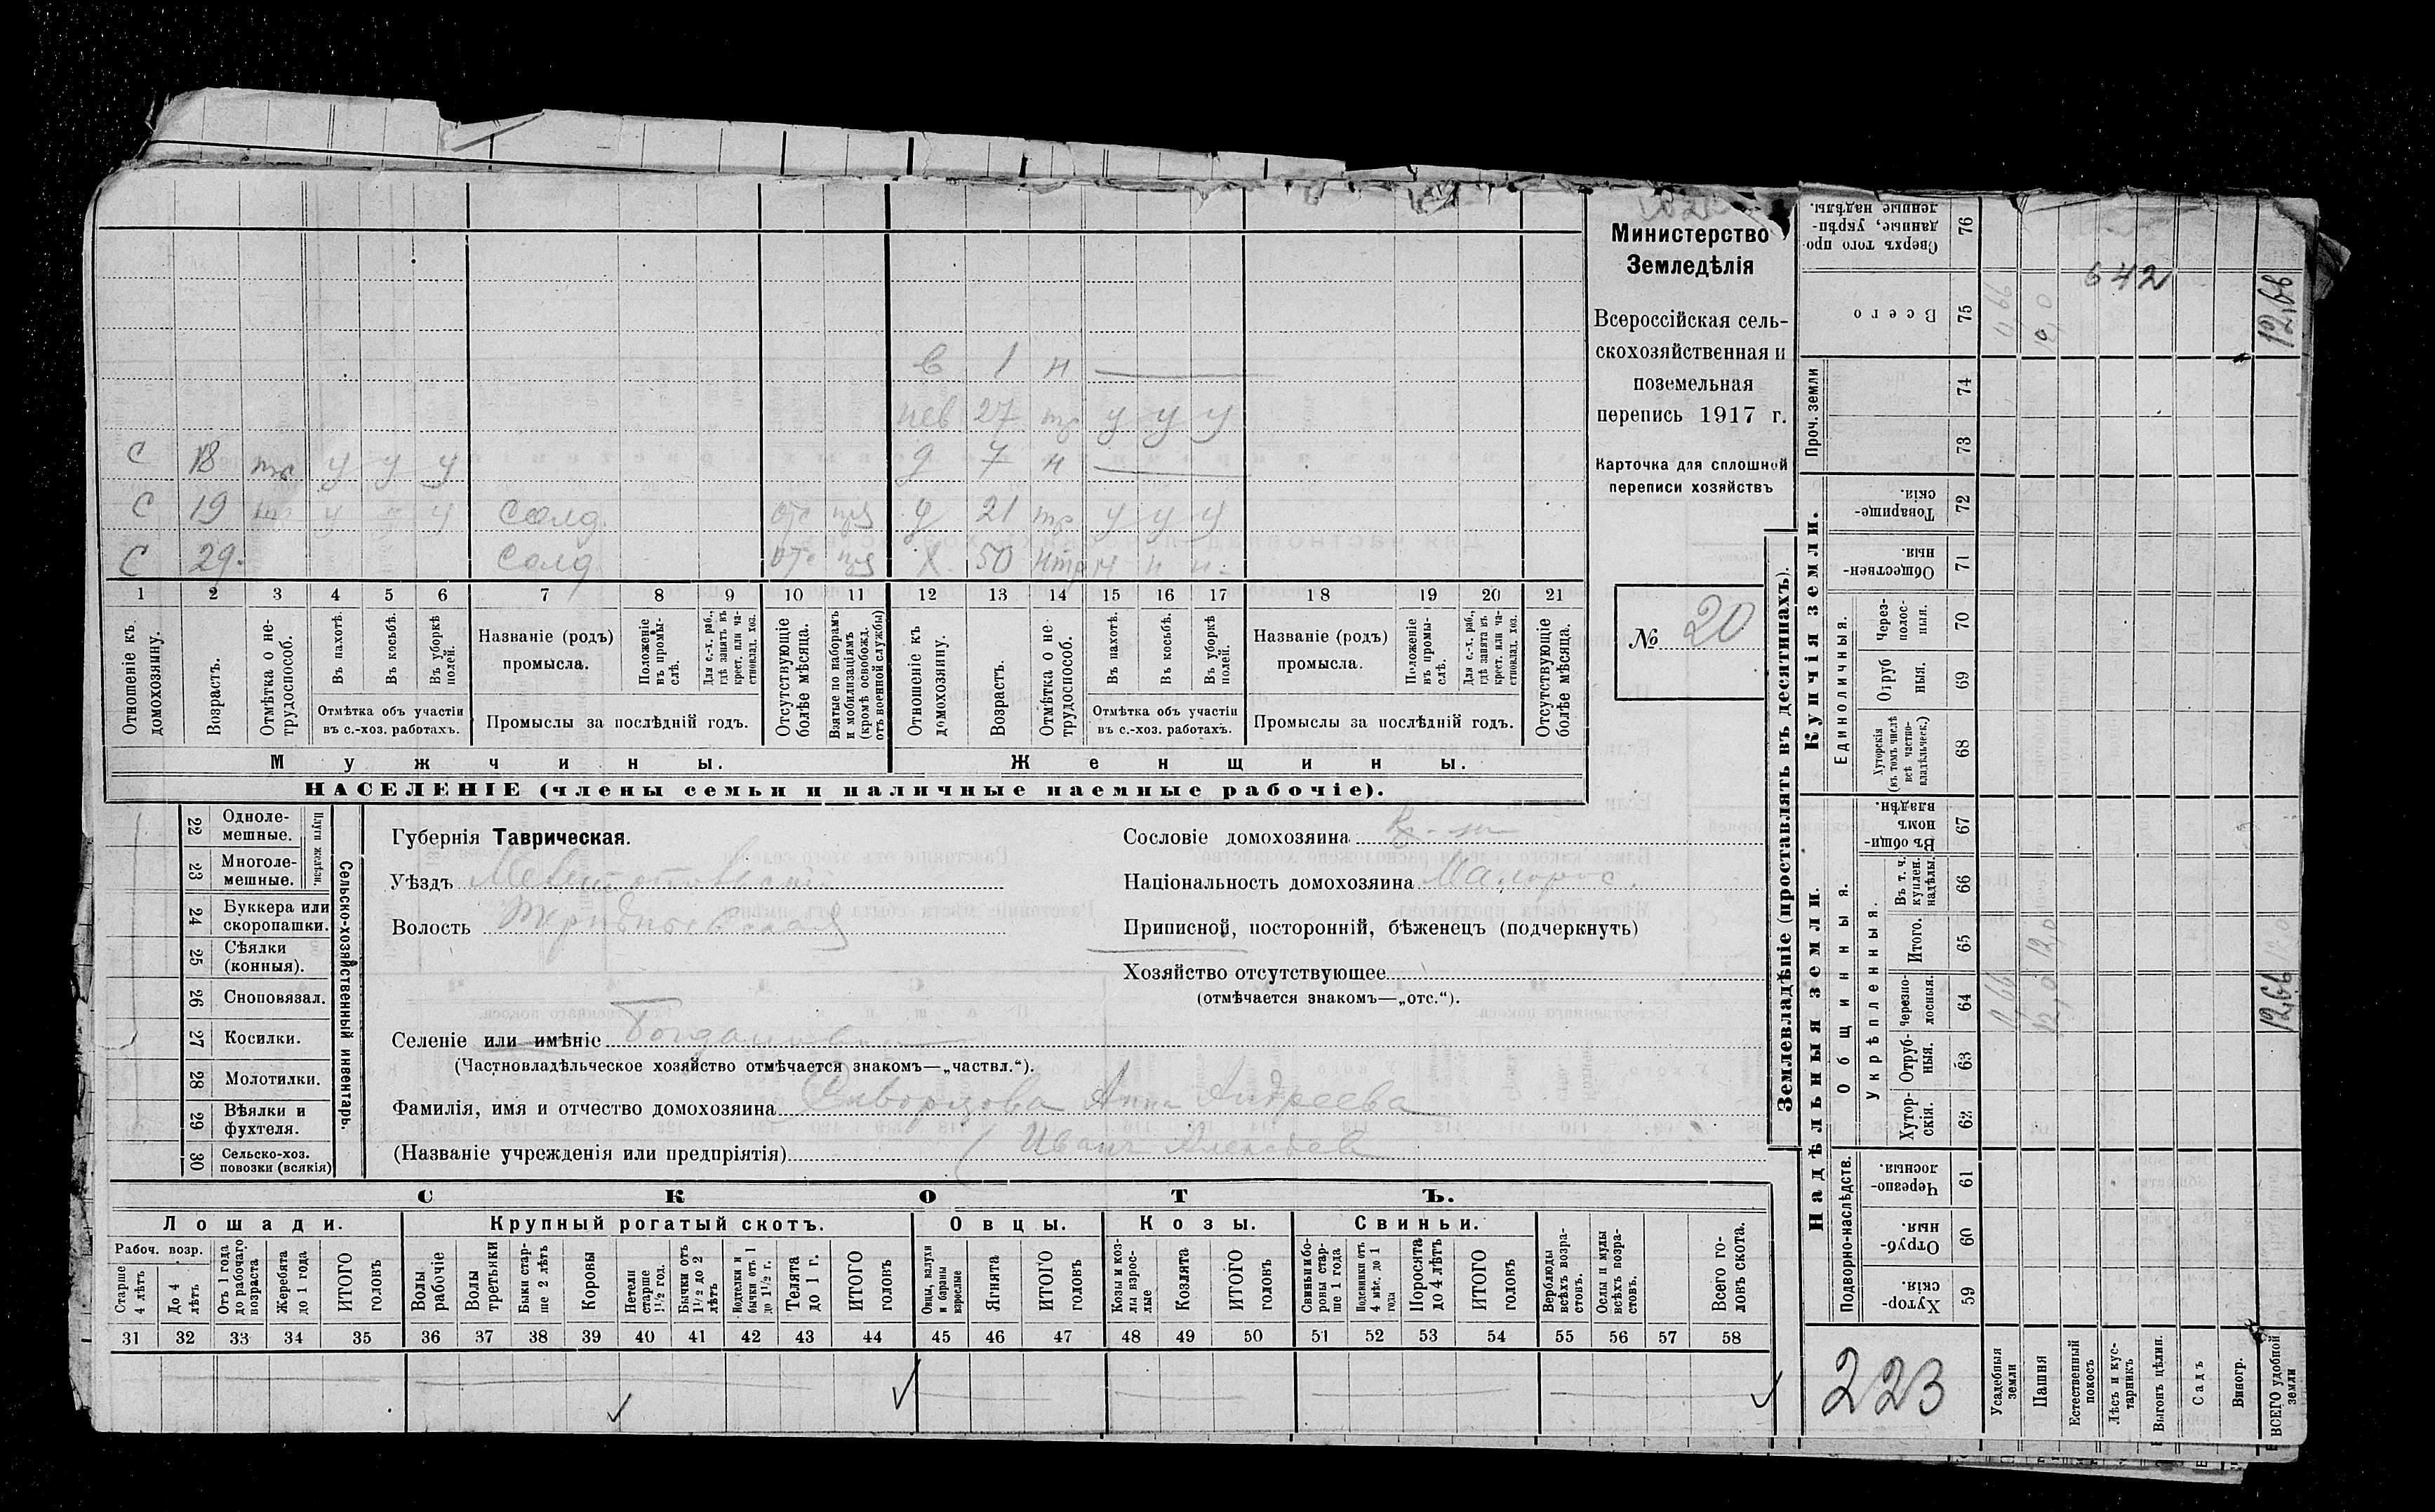 Министерство
Земледѣлія
Всероссійская сель-
скохозяйственная и
поземельная
перепись 1917 г.
Карточка для сплошной
переписи хозяйствъ
№ 20
в 1 н
нев 27 тр у у у
С 18 тр у у у д 7 н
С 19 у у солд. отс д 21 тр у у у
С 29. солд отс х. 50 нтр н н н.
1 2 3 4 5 6 7 8 9 10 11 12 13 14 15 16 17 18 19 20 21
Отношеніе къ домохозяину.
Возрастъ.
Отмѣтка о не-трудоспособ.
Въ пахотѣ.
Въ косьбѣ.
Въ уборкѣ полей.
Отмѣтка объ участіи
въ с.-хоз. работахъ.
Названіе (родъ)
промысла.
Положеніе въ промы-слѣ.
Для с.-х. раб., гдѣ занятъ въ крест. или ча-стновлад. хоз.
Промыслы за послѣдній годъ.
Отсутствующіе болѣе мѣсяца.
Взятые по наборамъ и мобилизаціямъ (кромѣ освобожд. отъ военной службы)
Отношеніе къ домохозяину.
Возрастъ.
Отмѣтка о не трудоспособ.
Въ пахотѣ.
Въ косьбѣ.
Въ уборкѣ полей.
Отмѣтка объ участіи
въ с.-хоз. работахъ.
Названіе (родъ)
промысла.
Положеніе въ промы-слѣ.
Для с.-х. раб., гдѣ занята въ крест. или ча-стновлад. хоз.
Промыслы за послѣдній годъ.
Отсутствующіе болѣе мѣсяца.
Мужчины. Женщины.
НАСЕЛЕНІЕ (члены семьи и наличные наемные рабочіе).
22 Одноле-мешные.
23 Многоле-мешные.
Плуги желѣзн.
24 Буккера или скоропашки.
25 Сѣялки (конныя).
26 Сноповязал.
27 Косилки.
28 Молотилки.
29 Вѣялки и фухтеля.
30 Сельско-хоз. повозки (всякія)
Сельско-хозяйственный инвентарь.
Губернія Таврическая.
Уѣздъ Мелитопольскій
Волость
Селеніе или имѣніе
(Частновладѣльческое хозяйство отмѣчается знакомъ—„частвл.“).
Фамилія, имя и отчество домохозяина Скворцова Анна Андреева
(Названіе учрежденія или предпріятія) (Иванъ Алексѣев
Сословіе домохозяина
Національность домохозяина Малорос.
Приписной, посторонній, бѣженецъ (подчеркнуть)
Хозяйство отсутствующее
(отмѣчается знакомъ—„отс.“).
СКОТЪ.
Лошади. Крупный рогатый скотъ. Овцы. Козы. Свиньи.
Рабоч. возр.
Старше 4 лѣтъ
До 4 лѣтъ
Отъ 1 года до рабочаго возраста
Жеребята до 1 года
ИТОГО головъ
Волы рабочіе
Волы третьяки
Быки стар-ше 2 лѣтъ
Коровы
Нетели старше 1½ год.
Бычки отъ 1½ до 2 лѣтъ
Подтелки и бычки отъ 1 до 1½ г.
Телята до 1 г.
ИТОГО головъ
Овцы, валухи и бараны взрослые
Ягнята
ИТОГО головъ
Козы и коз-лы взрос-лые
Козлята
ИТОГО головъ
Свиньи и бо-ровы стар-ше 1 года
Подсвинки отъ 4 мѣс. до 1 года
Поросята до 4 лѣтъ
ИТОГО головъ
Верблюды всѣхъ возра-стовъ.
Ослы и мулы всѣхъ возра-стовъ.
Всего го-ловъ скота.
31 32 33 34 35 36 37 38 39 40 41 42 43 44 45 46 47 48 49 50 51 52 53 54 55 56 57 58
Землевладѣніе (проставлять въ десятинахъ).
Сверхъ того про-данные, укрѣп-ленные надѣлы. 76
642
Всего 75 12,66
Проч. земли 74
73
Купчія земли.
Товарище-скія. 72
Обществен-ныя. 71
Единоличныя.
Через-полос-ныя. 70
Отруб ныя. 69
Хуторскія (въ томъ числѣ всѣ частно-владѣльческ.) 68
Надѣльныя земли.
Общинныя.
Въ общи-номъ владѣн. 67
Укрѣпленныя.
Въ т. ч. куплен. надѣлы. 66
Итого. 65
Черезпо-лосныя. 64 12,66
Отруб-ныя. 63
Хутор-скія. 62
Подворно-наслѣдств.
Черезпо-лосныя. 61
Отруб-ныя. 60
Хутор-скія. 59
223
Усадебныя земли
Пашня
Естественный покосъ
Лѣсъ и кус-тарникъ
Выгонъ цѣлин.
Садъ
Виногр.
ВСЕГО удобной земли